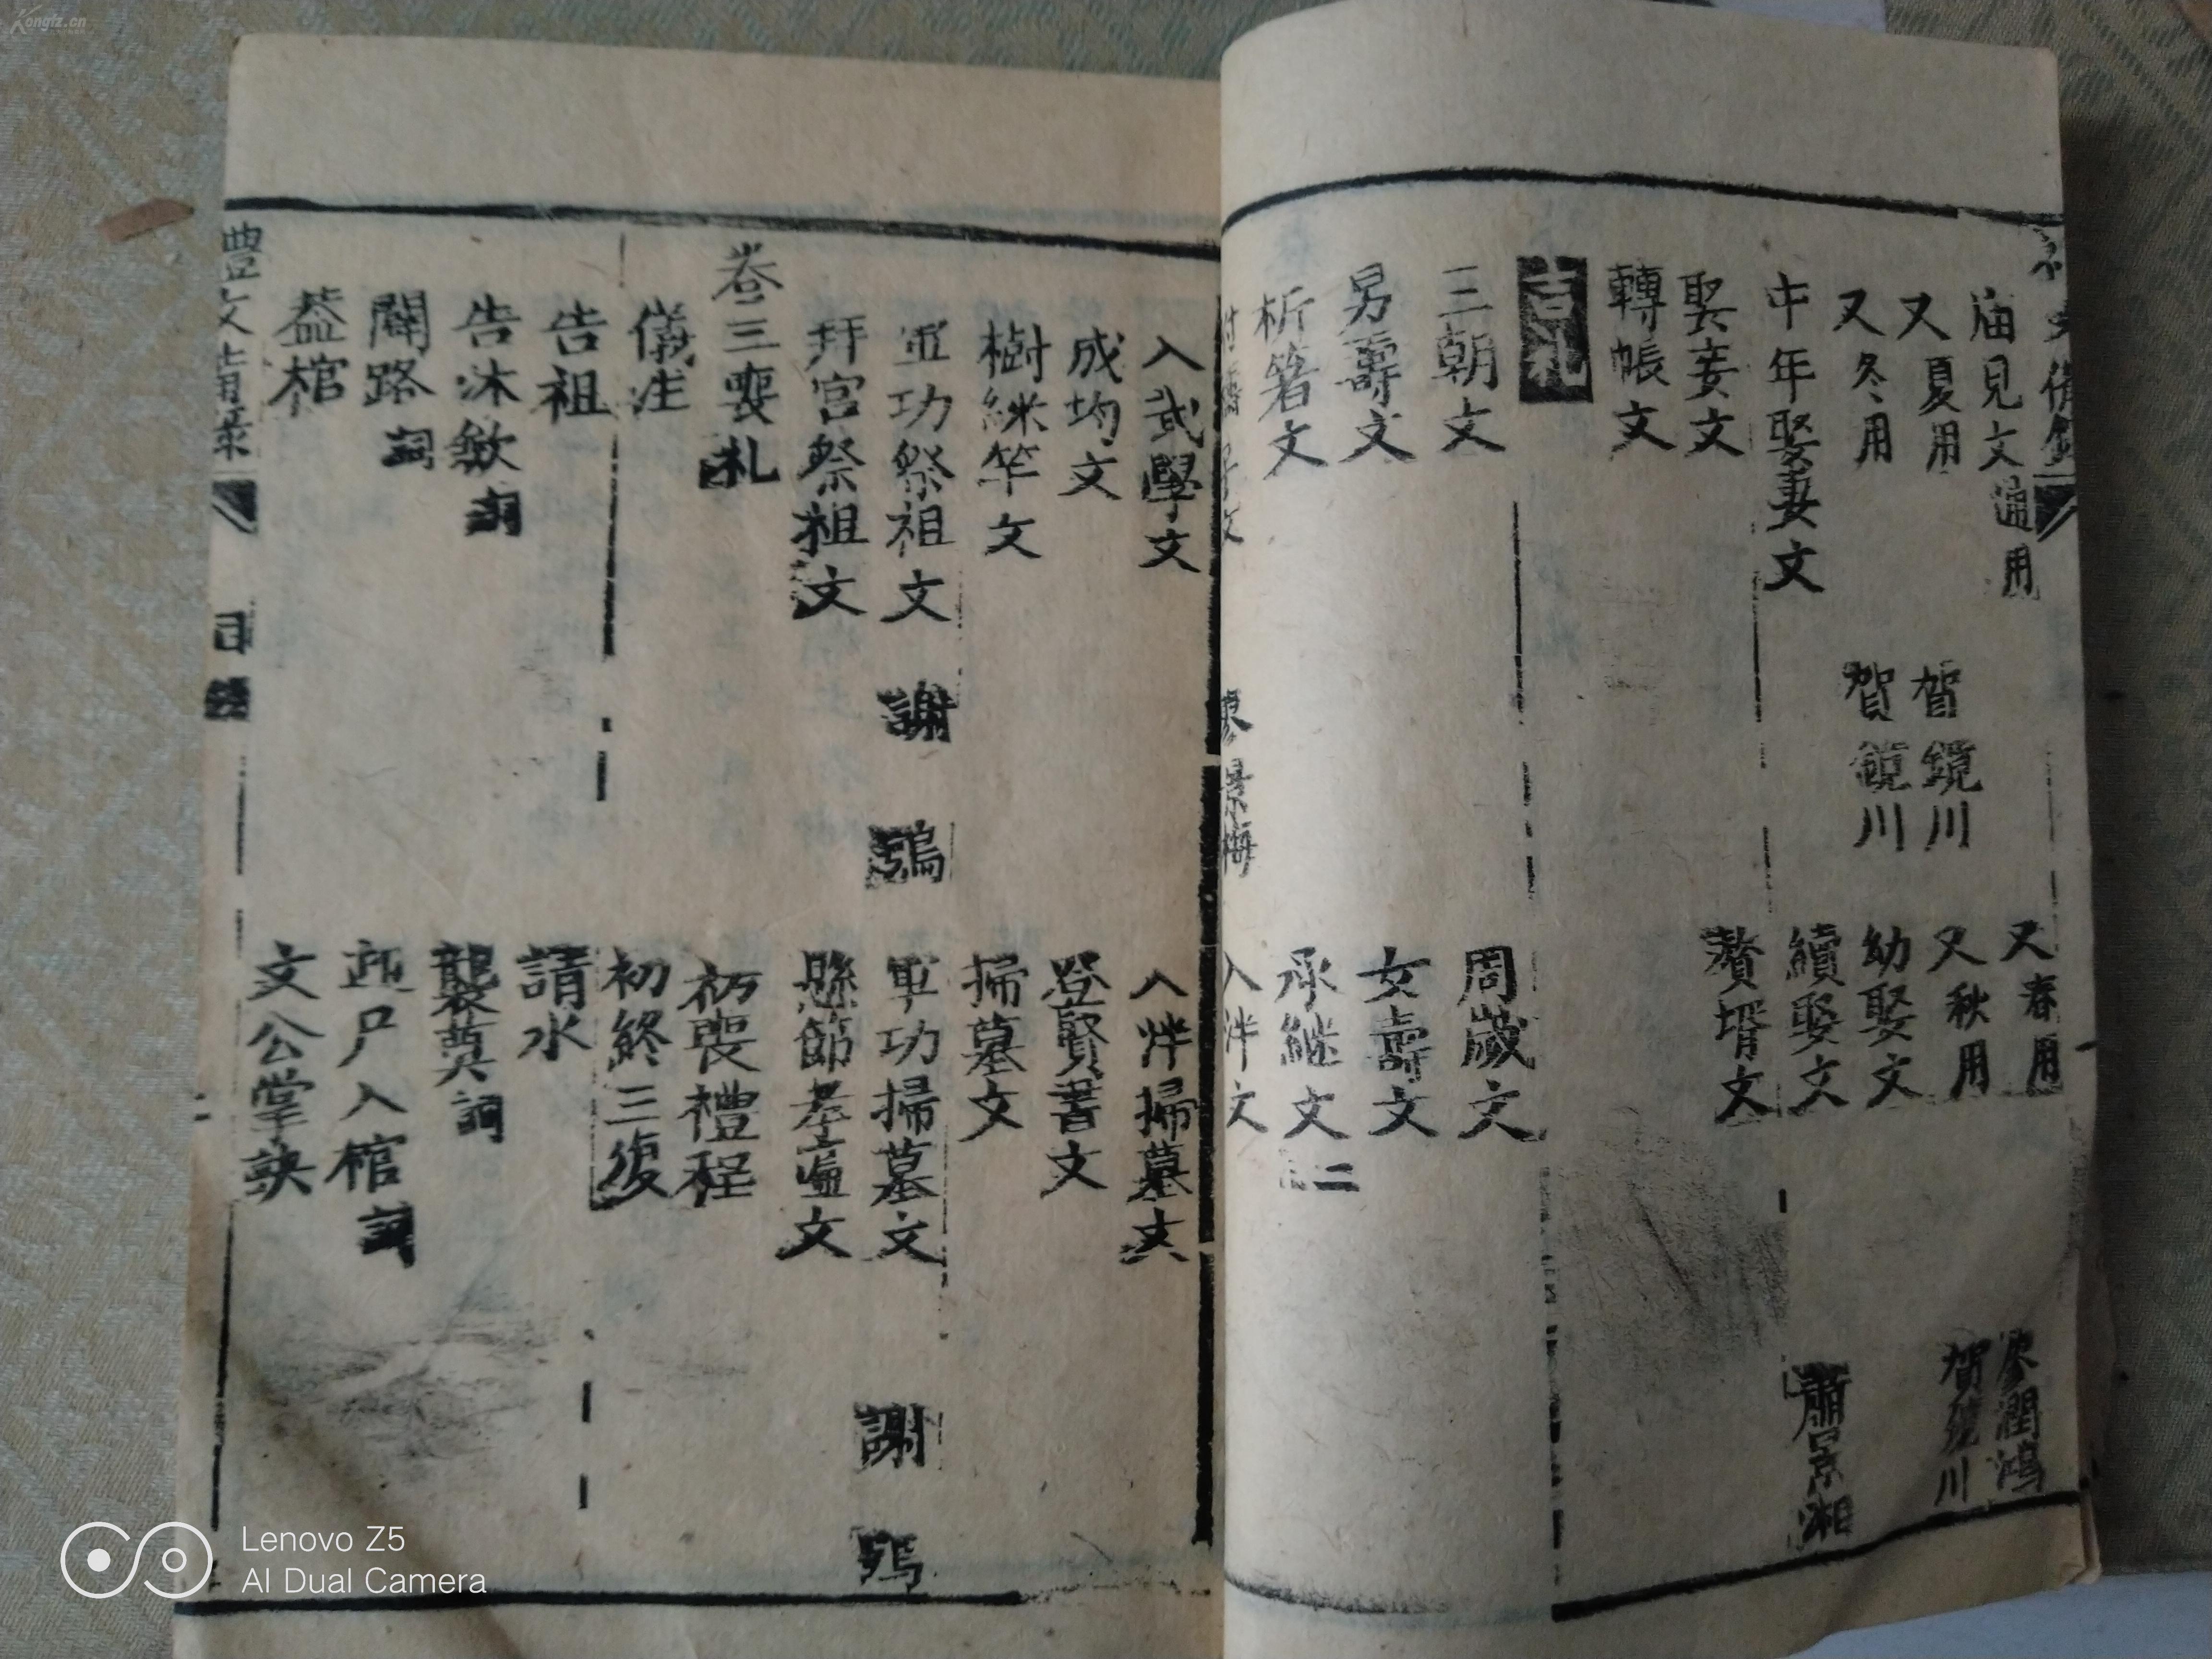 庙見文通用
又春用
廖潤鴻
又夏用
賀鏡川
又秋用
賀鏡川
又冬用
賀鏡川
幼娶文
中年娶妻文
續娶文
蕭景湘
娶妾文
贅壻文
轉帳文
吉礼
三朝文
周歲文
男壽文
女壽文
析箸文
承継文二
景梅
入泮文
入武學文
入泮掃墓文
成均文
登賢書文
樹綵竿文
掃墓文
軍功祭祖文
謝鴞
軍功掃墓文
謝鴞
拜宫祭祖文
懸節孝匾文
卷三喪札
初喪禮程
儀注
初終三復
告祖
請水
告沐斂詞
襲奠詞
開路詞
起尸入棺詞
蓋棺
文公掌訣
禮文備录
目錄
二
Kongfz.cn
Lenovo Z5
AI Dual Camera